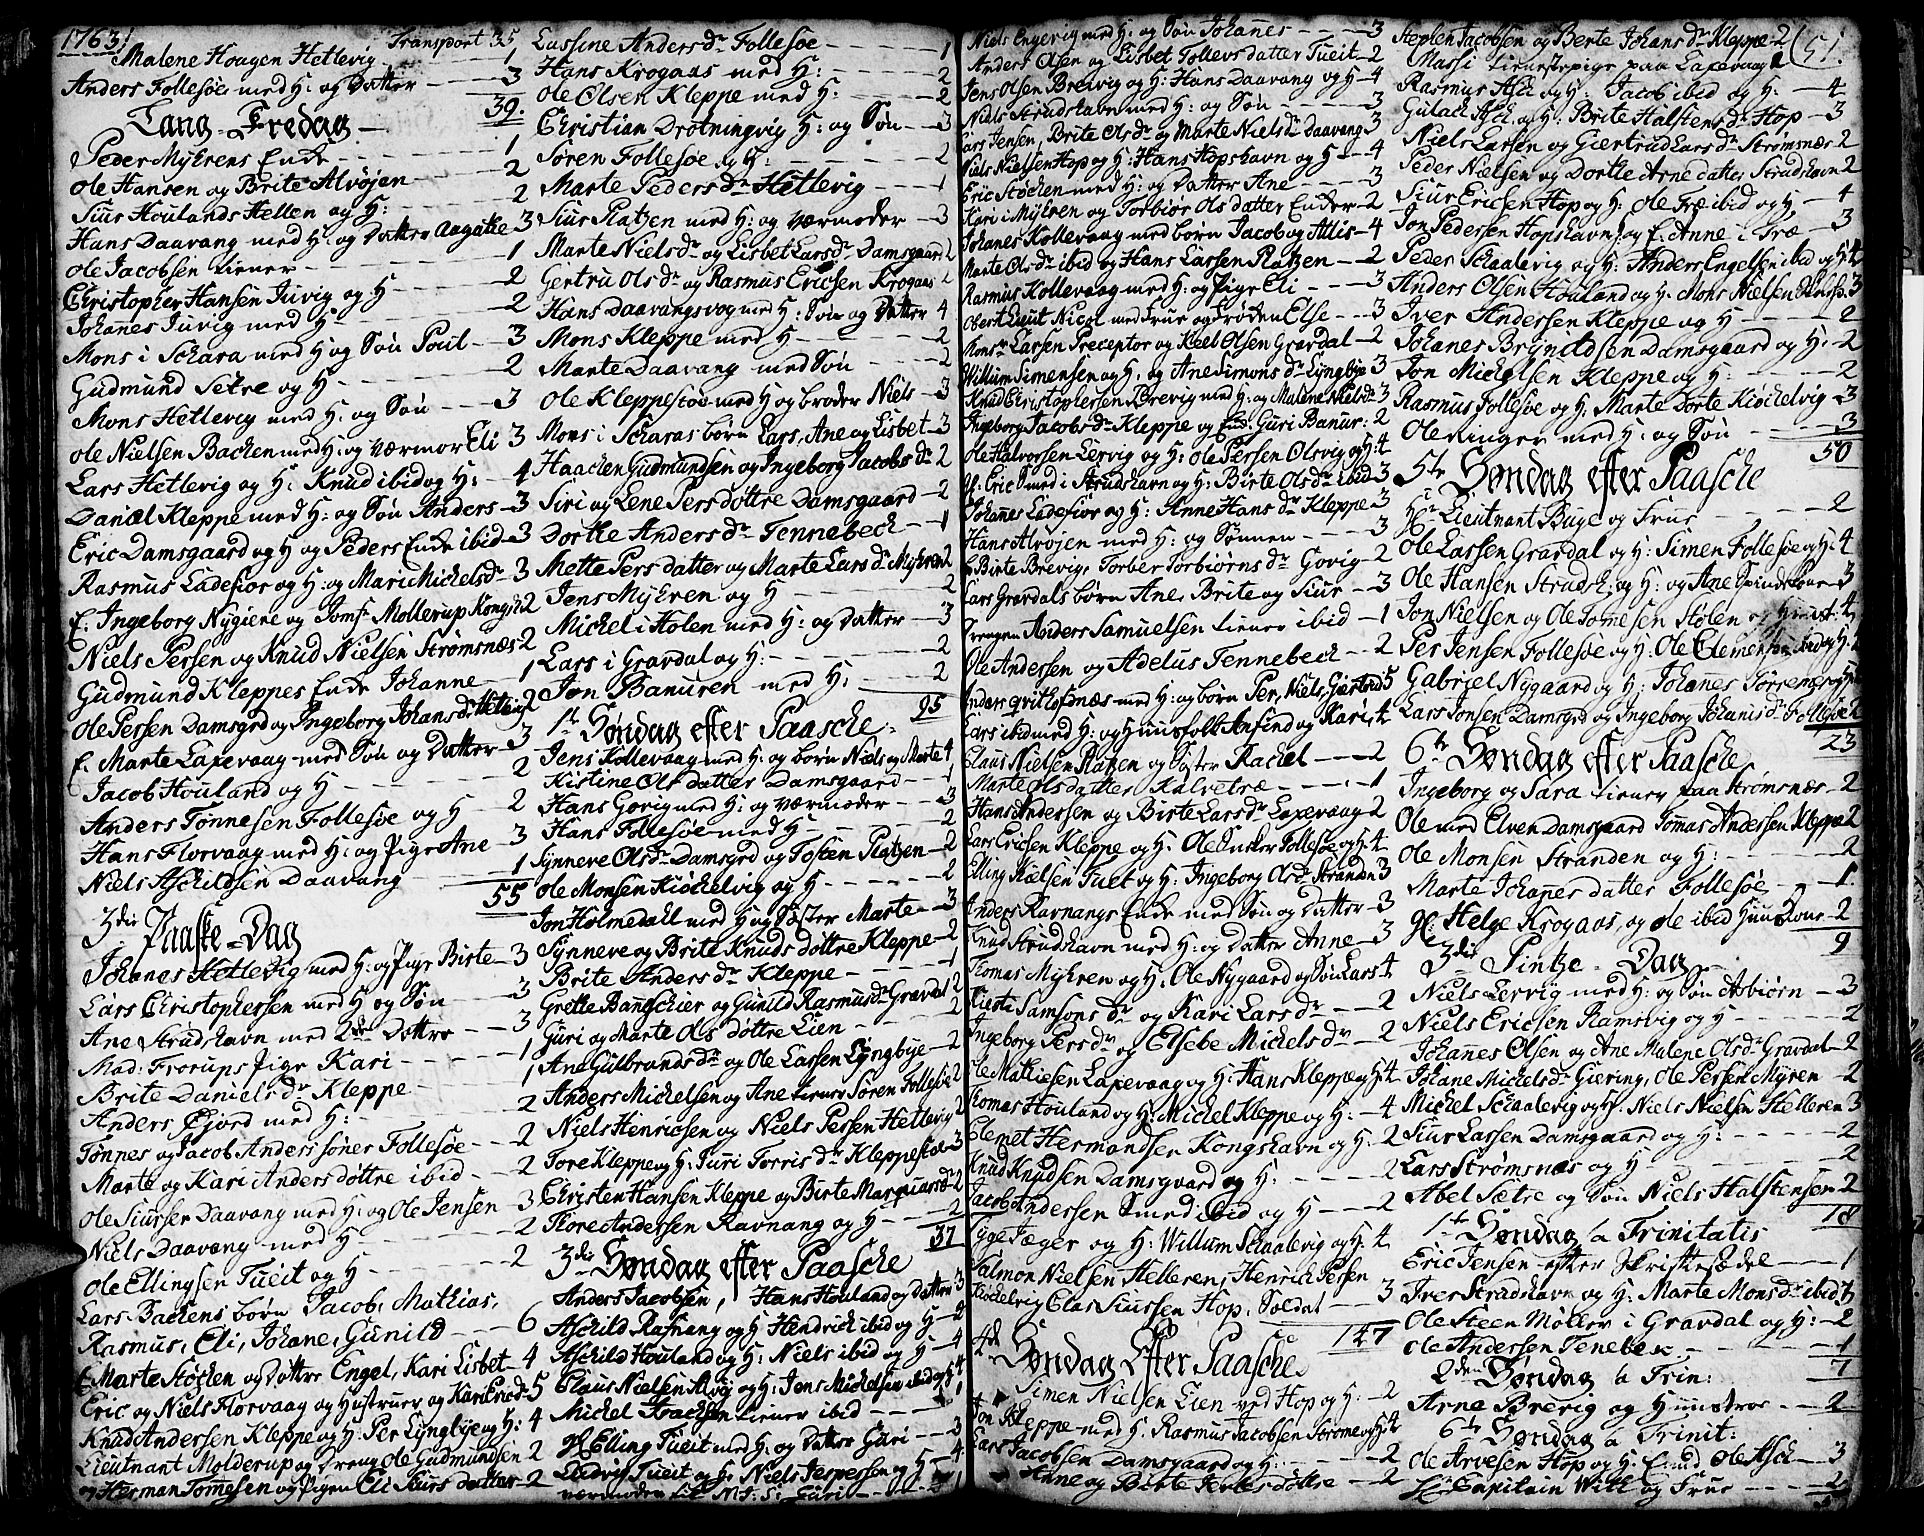 1763
Transport 35
Malene Haagen Hetlevig - 1
Anders Follesøe med H: og Datter - 3
39.
Lang-Fredag
Peder Myhrens Enke - 1
Ole Hansen og Brite Alvøjen - 2
Siur Houlands Hellen og H: - 2
Hans Daavang med H: og Datter Aagatie 3
Ole Jacobsen tiener - 1
Christopher Hansen Juvig og H - 2
Johanes Juvig med H - 2
Mons i Schara med H og Søn Poul - 3
Gudmund Setre og H - 2
Mons Hetlevig med H: og Søn - 3
Ole Nielsen Bachen med H: og værmor Eli 3
Lars Hetlevig og H: Knud ibid og H: - 4
Daniel Kleppe med H: og Søn Anders - 3
Eric Damsgaard og H og Peders Enke ibid - 3
Rasmus Ladefior og H: og Mari Michelsdr 3
E. Ingeborg Nygiene og Jomfr Mollerup Kongsh 2
Niels Persen og Knud Nielsen Strømsnæs 2
Gudmund Kleppes Enke Johanne - 1
Ole Persen Damsgrd og Ingeborg Johansdr Hetlevig 2
E. Marte Laxevaag med Søn og Datter - 3
Jacob Houland og H - 2
Anders Tønnesen Follesøe og H - 2
Hans Florvaag med H: og Pige Ane - 3
Niels Aschildsen Daavang - 1
55
3die Paaske-Dag
Johanes Hetlevig med H: og Pige Birte - 3
Lars Christophersen med H og Søn - 3
Ane Strudshavn med 2de Døttre - 3
Mad. Frorups Pige Kari - 1
Brite Danielsdr Kleppe - 1
Anders Fjord med H: - 2
Tønnes og Jacob Anders sønner Follesøe - 2
Marte og Kari Anders døttre ibid - 2
Ole Siursen Daavang med H: og Ole Jensen 3
Niels Daavang med H - 2
Ole Ellingsen Tueit og H - 2
Lars Bachens børn Jacob, Mathias,
Rasmus, Eli, Johane, Gunild - 6
E. Marte Støchen og Døttre Engel, Kari Lisbet - 4
Eric og Niels Florvaag og Hustruer og Kari Ered - 5
Knud Andersen Kleppe og H: Per Lyngbye og H: 4
Lieutnant Molderup og Dreng Ole Gudmundsen 2
og Herman Tomesen og Pigen Eli Siurs datter - 2
Lussine Andersdr Follesøe - 1
Hans Krogaas med H: - 2
Ole Olsen Kleppe med H: - 2
Christian Drotningvig H: og Søn - 3
Søren Follesøe og H: - 2
Marte Pedersdr Hetlevig - 1
Siur Platzen med H: og værmoder - 3
Marte Nielsdr og Lisbet Larsdr Damsgaard 2
Gertru Olsdr og Rasmus Ericsen Krogaas 2
Hans Daavangsvog med H: Søn og Datter 4
Mons Kleppe med H - 2
Marte Daavang med Søn - 2
Ole Kleppestoe med H og broder Niels - 3
Mons i Scharas børn Lars, Ane og Lisbet - 3
Haachen Gudmundsen og Ingeborg Jacobsdr 2
Siri og Lene Pers døttre Damsgaard - 2
Dorthe Andersdr Tennebech - 1
Mette Pers datter og Marte Larsdr Myhren 2
Jens Myhren og H - 2
Michel i Holen med H: og Datter - 3
Lars i Gravdal og H: - 2
Jon Banuren med H: - 2
95
1te Søndag efter Paasche
Jens Kollevaag med H: og børn Niels og Marte 4
Kistine Ols datter Damsgaard - 1
Hans Govig med H: og værmoder - 3
Hans Follesøe med H - 2
Synneve Olsdr Damsgrd og Tosten Platzen - 2
Ole Monsen Kiøchelvig og H - 2
Jon Holmedahl med H og Søster Marte - 3
Synneve og Brite Knuds døttre Kleppe - 2
Brite Andersdr Kleppe - 1
Grette Bangschier og Gunild Rasmusdr Gravdal 2
Guri og Marte Ols døttre Lien - 2
Ane Gulbrandsdr og Ole Larsen Lyngbye - 2
Anders Michelsen og Ane tiener Søren Follesøe 2
Niels Henricsen og Niels Persen Hetlevig 2
Tore Kleppe og H: Turi Torrisdr Kleppestoe 3
Christen Hansen Kleppe og Birte Marquardsdr 2
Tore Andersen Ravnang og H - 2
37
3die Søndag efter Paasche
Anders Jacobsen, Hans Houland og Datter 3
Aschild Rafnang og H Hendrich ibid og H - 4
Aschild Houland og H: Niels ibid og H - 4
Claus Nielsen Alvig og H: Jens Michelsen ibid og H 4
Michel Haachsen tiener ibid - 1
Gl Elling Tueit med H: og Datter Guri - 3
Ludvig Tueit og H: Niels Jespersen og H - 4
Niels Engevig med H: og Søn Johanes - 3
Anders Olsen og Lisbet Tollevs datter Tueit - 2
Jens Olsen Brevig og H: Hans Daavang og H - 4
Niels Strudshavn med H: og Søn - 3
Lars Jensen, Brite Olsdr og Marte Nielsdr Daavang 3
Niels Nielsen Hop og H: Hans Hopshavn og H - 4
Eric Støchen med H: og Datter Ane - 3
Kari i Myhren og Torbiør Ols datter Enker - 2
Johanes Kollevaag med børn Jacob og Allis - 4
Marte Olsdr ibid og Hans Larsen Platzen - 2
Rasmus Kollevaag med H: og Pige Eli - 3
Obert Lieut Nicol med Frue og Frøken Else - 3
Monsr Larsen Preceptor og Keel Olsen Gravdal - 2
Willum Simensen og H. og Ane Simonsdr Lyngbye 3
Knud Christophersen Brevig med H: og Malene Nielsdr 3
Ingeborg Jacobsdr Kleppe og Enk. Guri Banur: 2
Ole Halvorsen Lervig og H: Ole Persen Olsvig og H: 4
Gl. Eric Smed i Strudshavn og H: Birte Olsdr ibid 3
Johanes Ladefior og H: Anne Hansdr Kleppe 3
Hans Alvøjen med H: og Sønnen - 3
E Birte Brevig, Torber Torbiørnsdr Govig - 2
Lars Gravdals børn Ane, Brite og Siur - 3
Drengen Anders Samuelsen tiener ibid - 1
Ole Andersen og Adelus Tennebech - 2
Anders Qvitlofsnæs med H: og børn Per, Niels, Giertrud 5
Lars ibid med H: og Huusfolk Anfind og Kari - 4
Claus Nielsen Platzen og Søster Rachel - 2
Marte Ols datter Kalvetræ - 1
Hans Andersen og Birte Larsdr Laxevaag 2
Lars Ericsen Kleppe og H: Ole Ensker Follesøe og H: 4
Elling Nielsen Tuet og H: Ingeborg Olsdr Stranden 3
Anders Ravnangs Enke med Søn og Datter - 3
Knud Strudshavn med H: og Datter Anne - 3
Thomas Myhren og H: Ole Nygaard og Søn Lars 4
Kiersti Samsonsdr og Kari Larsdr - 2
Ingeborg Persdr og Elsebe Michelsdr - 2
Ole Mathiesen Laxevaag og H: Hans Kleppe og H 4
Thomas Houland og H: Michel Kleppe og H: - 4
Clemet Hermandsen Kongshavn og H: 2
Knud Knudsen Damsgaard og H: - 2
Jacob Andersen Smed ibid og H - 2
Tyge Jæger og H: Willum Schaalevig og H: 4
Salmon Nielsen Helleren, Henrich Persen
Kiøchelvig Clas Siursen Hop, Soldat - 3
147
4de Søndag Efter Paasche
Simen Nielsen Lien ved Hop og H: - 2
Jon Kleppe med H. Rasmus Jacobsen Strome og H: 4
Lars Jacobsen Damsgaard og H: - 2
Anne og Birte Pers døttre - 2
51.
Stephen Jacobsen og Berte Johansdr Kleppe 2
Massi tienestepige paa Laxevaag 1
Rasmus Ask og H: Jacob ibid og H: - 4
Gulach Ask og H: Brite Halstensdr Hop - 3
Niels Larsen og Giertrud Larsdr Strømsnæs 2
Peder Nielsen og Dorthe Arne datter Strudshavn 2
Siur Ericsen Hop og H: Ole Træ ibid og H - 4
Jon Pedersen Hopshavn, og E. Anne i Træ - 3
Peder Schaalevig og H: Anders Engelsen ibid og H 4
Anders Olsen Houland og H: Mons Nielsen 3
Iver Andersen Kleppe og H - 2
Johanes Bryndtsen Damsgaard og H: 2
Jon Michelsen Kleppe og H: - 2
Rasmus Follesøe og H: Marte Dorte Kiøchelvig 3
Ole ringer med H: og Søn - 3
50
5te Søndag efter Paasche
Hr Lieutnant Buge og Frue - 2
Ole Larsen Gravdal og H: Simen Follesøe og H: 4
Ole Hansen Strudsh. og H: og Ane Spindekone 3
Jon Nielsen og Ole Tomesen Hølen og Hustr. 4
Per Jensen Follesøe og H: Ole Clementsen ibid og H:
Gabriel Nygaard og H: Johanes
Lars Jonsen Damsgrd og Ingeborg Johanisdr Follesøe 2
23
6te Søndag efter Paasche
Ingeborg og Sara tiener paa Strømsnæs - 2
Ole med Elven Damsgaard Tomas Andersen Kleppe 2
Ole Monsen Stranden og H: - 2
Marte Johanes datter Follesøe - 1
Gl. Helge Krogaas, og Ole ibid Huuskone - 2
9
3die Pintze-Dag
Niels Lervig med H: og Søn Asbiørn - 3
Niels Ericsen Ramsvig og H - 2
Johanes Olsen og Ane Malene Olsdr Gravdal - 2
Johane Michelsdr Giering, Ole Persen Myren - 2
Michel Schaalevig og H. Niels Nielsen Helleren 3
Siur Larsen Damsgaard og H: - 2
Lars Strømsnæs og H - 2
Abel Sætre og Søn Niels Halstensen 2
18
1te Søndag a Trinitatis
Eric Jensen efter Skriftesædle - 1
Iver Strudshavn og H: Marte Monsdr ibid 3
Ole Steen Møller i Gravdal og H: - 2
Ole Andersen Tenebek - 1
7
2den Søndag a Trin:
Arne Brevig og Huustroe - 2
6te Søndag a Trinit:
Ole Arvesen Hop og H: Knud Ole Asch - 3
Hr Capitain Witt og Frue - 2